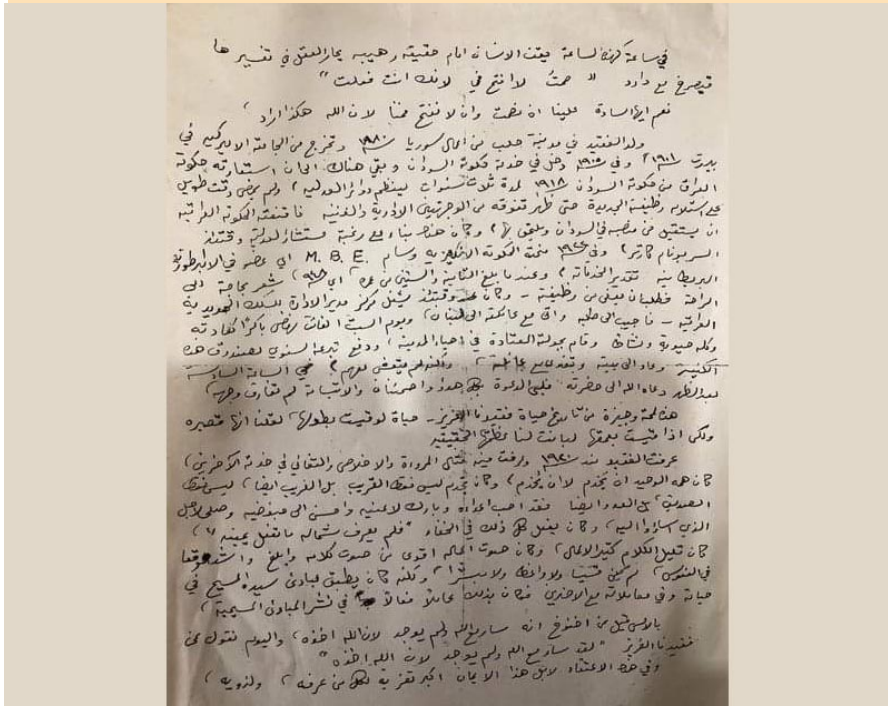 في ساعة كهذه الساعة يقف الانسان امام حقيقة رهيبة يحار العقل في تفسيرها
فيصرخ مع داود " صمتُ لا افتح فمي لانك انت فعلت "
نعم ايها السادة علينا ان نصمت وان لا نفتح فمنا لان الله هكذا اراد ،
ولد الفقيد في مدينة حلب من اعمال سوريا سنة ١٨٨٠ وتخرج من الجامعة الاميركية في
بيروت سنة ١٩٠١ وفي سنة دخل في خدمة حكومة السودان وبقي هناك الى ان استعارته حكومة
العراق من حكومة السودان سنة ١٩١٨ لمدة ثلاث سنوات لينظم دوائر العدلية ، ولم يمض وقت طويل
على استلامه وظيفته الجديدة حتى ظهر تفوقه من الوجهتين الادارية والفنية فاقنعته الحكومة العراقية
ان يستقيل من منصبه في السودان ويلتحق بها ، وكان هذا بناء على رغبة مستشار العدلية وقتئذ
السر بونام كارتر ، وفي سنة منحته الحكومة الانكليزية وسام M. B. E. اي عضو في الامبراطورية
البريطانية تقديرا لخدماته ، وعندما بلغ الثانية والستين من عمره اي شعر بحاجة الى
الراحة فطلب ان يعفى من وظيفته - وكان وقتئذ يشغل مركز مدير الادارة للسكك الحديدية
العراقية - فاجيب الى طلبه واتى مع عائلته الى لبنان ، ويوم السبت الفائت نهض باكرًا كعادته
وكله حيوية ونشاط وقام بجولته المعتادة في احياء المدينة ، ودفع تبرعه السنوي لصندوق هذه
الكنيسة وعاد الى بيته وتغدى مع عائلته ، ولكنه لم يتعشى معهم ، ففي الساعة السادسة
بعد الظهر دعاه الله الى حضرته فلبى الدعوة بكل هدوء واطمئنان والابتسامة لم تفارق وجهه ،
هذه لمحة وجيزة من تاريخ حياة فقيدنا العزيز - حياة لو قيست بطولها لقلنا انها قصيرة
ولكن اذا قيست بعمقها لبانت لنا عظمتها الحقيقية
عرفت الفقيد منذ سنة ١٩٢٠ وعرفت فيه مثال المروءة والاخلاص والتفاني في خدمة الآخرين ،
كان همه الوحيد ان يَخدم لا ان يُخدم ، وكان يخدم ليس فقط القريب بل الغريب ايضا ، ليس فقط
الصديق بل العدو ايضا فقد احب اعداءه وبارك لاعنيه واحسن الى مبغضيه وصلى لاجل
الذين اساؤوا اليه ، وكان يفعل كل ذلك في الخفاء " فلم يعرف شماله ما تفعل يمينه " ،
كان قليل الكلام كثير الاعمال ، وكان صوت اعماله اقوى من صوت كلامه وابلغ واشد وقعا
في النفوس ، لم يكن قسيسا ولا واعظا ولا مبشرا ، ولكنه كان يطبق مبادئ سيده المسيح في
حياته وفي معاملاته مع الآخرين فكان بذلك عاملاً فعالاً في نشر المبادئ المسيحية ،
بالامس قيل عن اخنوخ انه سار مع الله ولم يوجد لان الله اخذه ، واليوم نقول عن
فقيدنا العزيز " لقد سار مع الله ولم يوجد لان الله اخذه "
وفي هذا الاعتقاد لا بل هذا الايمان اكبر تعزية لكل من عرفه ، ولذويه ،